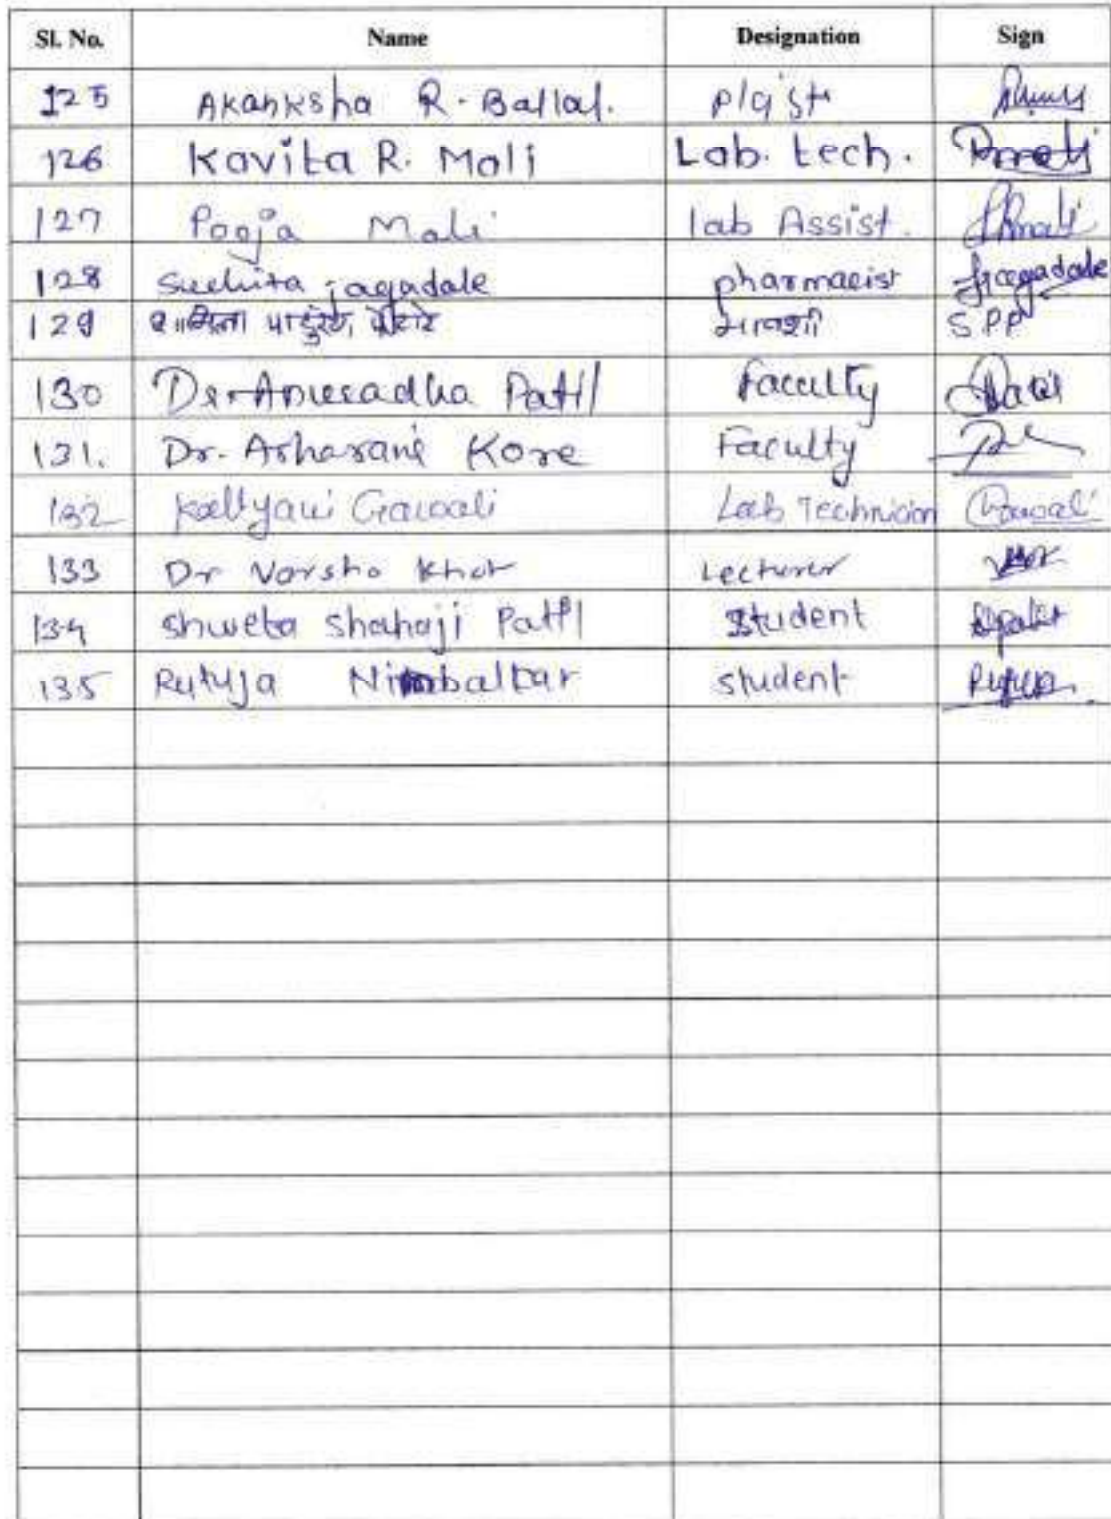 Sl. No. Name Designation Sign
125 Akanksha R. Ballal.
126 Kavita R. Mali Lab. tech.
127 Pooja Mali lab Assist.
128 Suchita jagadale pharmacist Jagadale
129 SPP
130 Dr. Anuradha Patil Faculty
131. Dr. Asharani Kore Faculty
132 Kallyani Gawali Lab Technician Gawali
133 Dr Varsha Khot Lecturer
134 Shweta Shahaji Patil Student
135 Rutuja Nimbalkar student